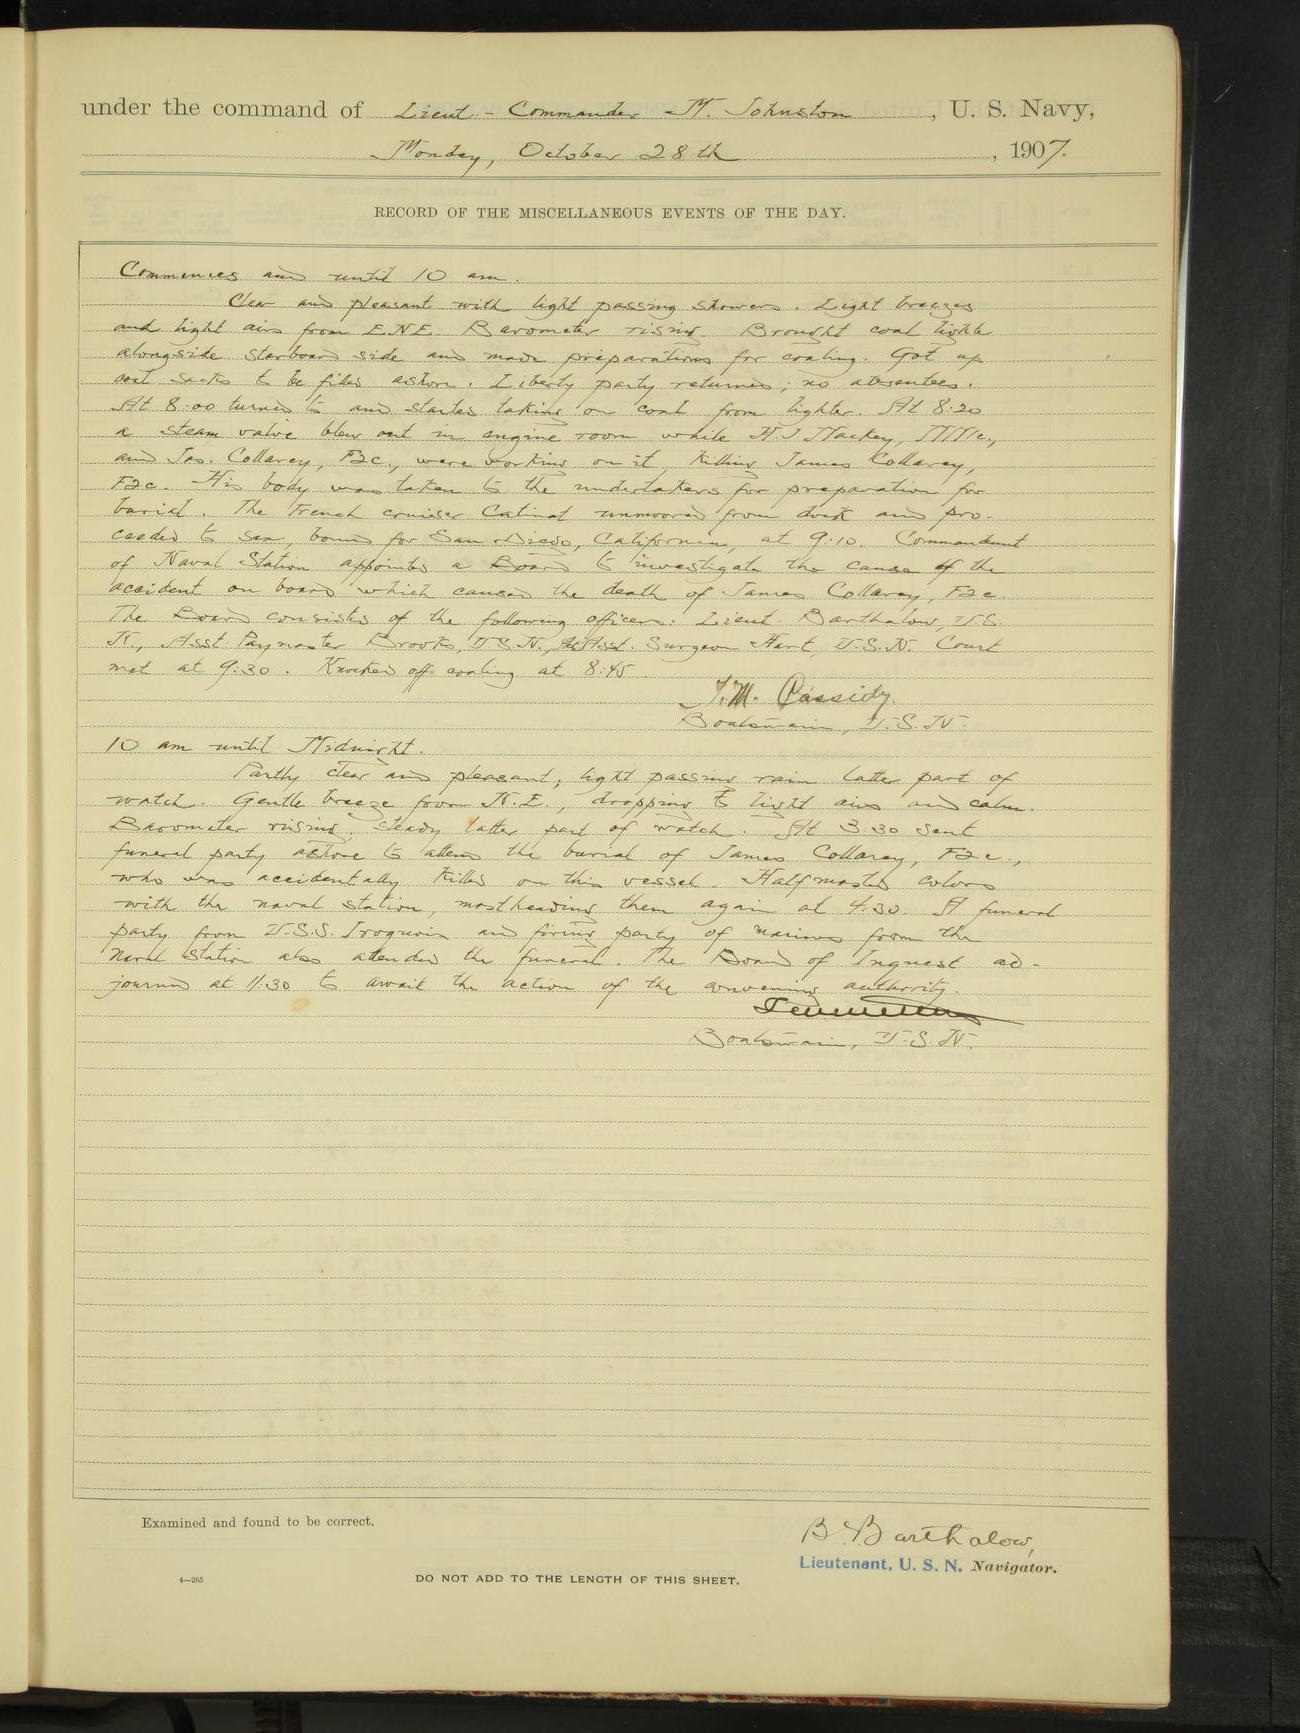 under the command of Lieut - Commander M. Johnston, U. S. Navy,
Monday, October 28th, 1907.
RECORD OF THE MISCELLANEOUS EVENTS OF THE DAY.
Commences and until 10 am.
Clear and pleasant with light passing showers. Light breezes
and light airs from E.N.E. Barometer rising. Brought coal lighter
alongside starboard side and made preparations for coaling. Got up
coal sacks to be filled ashore. Liberty party returned; no absentees.
At 8:00 turned to and started taking on coal from lighter. At 8:20
a steam valve blew out in engine room while H J Mackey,
and Jas. Collarey, F2c., were working on it, killing James Collarey,
F2c. His body was taken to the undertakers for preparation for
burial. The French cruiser Catinat unmoored from dock and pro-
ceeded to sea, bound for San Diego, California, at 9:10. Commandant
of Naval Station appointed a Board to investigate the cause of the
accident on board which caused the death of James Collarey, F2c.
The Board consists of the following officers: Lieut. Barthalow, U.S.
N., Asst Paymaster Brooks, U.S.N., Asst. Surgeon Hart, U.S.N. Court
met at 9:30. Knocked off coaling at 8:45.
T.M. Cassidy.
Boatswain, U.S.N.
10 am until Midnight.
Partly clear and pleasant, light passing rain latter part of
watch. Gentle breeze from N.E., dropping to light airs and calm.
Barometer rising, steady latter part of watch. At 3:30 sent
funeral party ashore to attend the burial of James Collarey, F2c.,
who was accidentally killed on this vessel. Halfmasted colors
with the naval station, mastheading them again at 4:30. A funeral
party from U.S.S. Iroquois and firing party of marines from the
Naval Station also attended the funeral. The Board of Inquest ad-
journed at 11:30 to await the action of the convening authority.
Boatswain, U.S.N.
Examined and found to be correct.
B. B. Barthalow,
Lieutenant, U. S. N. Navigator.
4—265
DO NOT ADD TO THE LENGTH OF THIS SHEET.